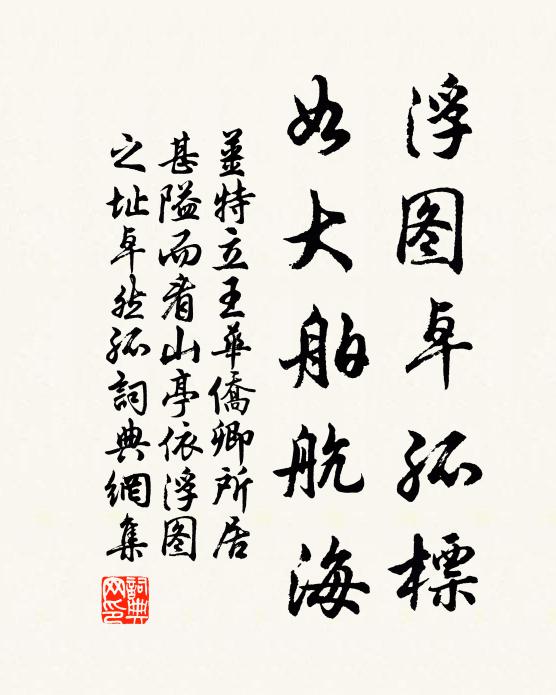 浮图卓孤標
如大舶航海
姜特立王華僑卿所居
甚隘而看山亭依浮图
之址卓然孤詞典網集
詞典